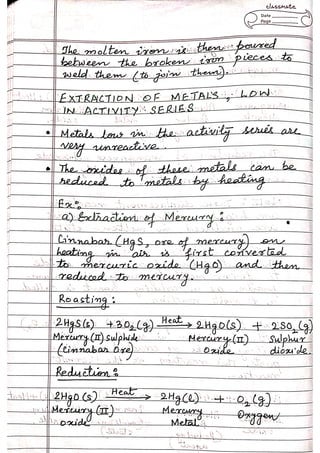 classmate
Date
Page
The molten iron is then poured
between the broken iron pieces to
weld them (to join them).
EXTRACTION OF METALS, LOW
IN ACTIVITY SERIES
• Metals low in the activity series are
very unreactive.
• The oxides of these metals can be
reduced to metals by heating
Ex:
a) Extraction of Mercury:
Cinnabar (HgS, ore of mercury) on
heating in air is first converted
to mercuric oxide (HgO) and then
reduced to mercury.
Roasting:
2HgS(s) + 3O₂(g) Heat→ 2HgO(s) + 2SO₂(g)
Mercury(II) sulphide Mercury(II) Sulphur
(Cinnabar Ore) Oxide dioxide.
Reduction:
2HgO(s) Heat→ 2Hg(l) + O₂(g)
Mercury(II) Mercury Oxygen
oxide Metal